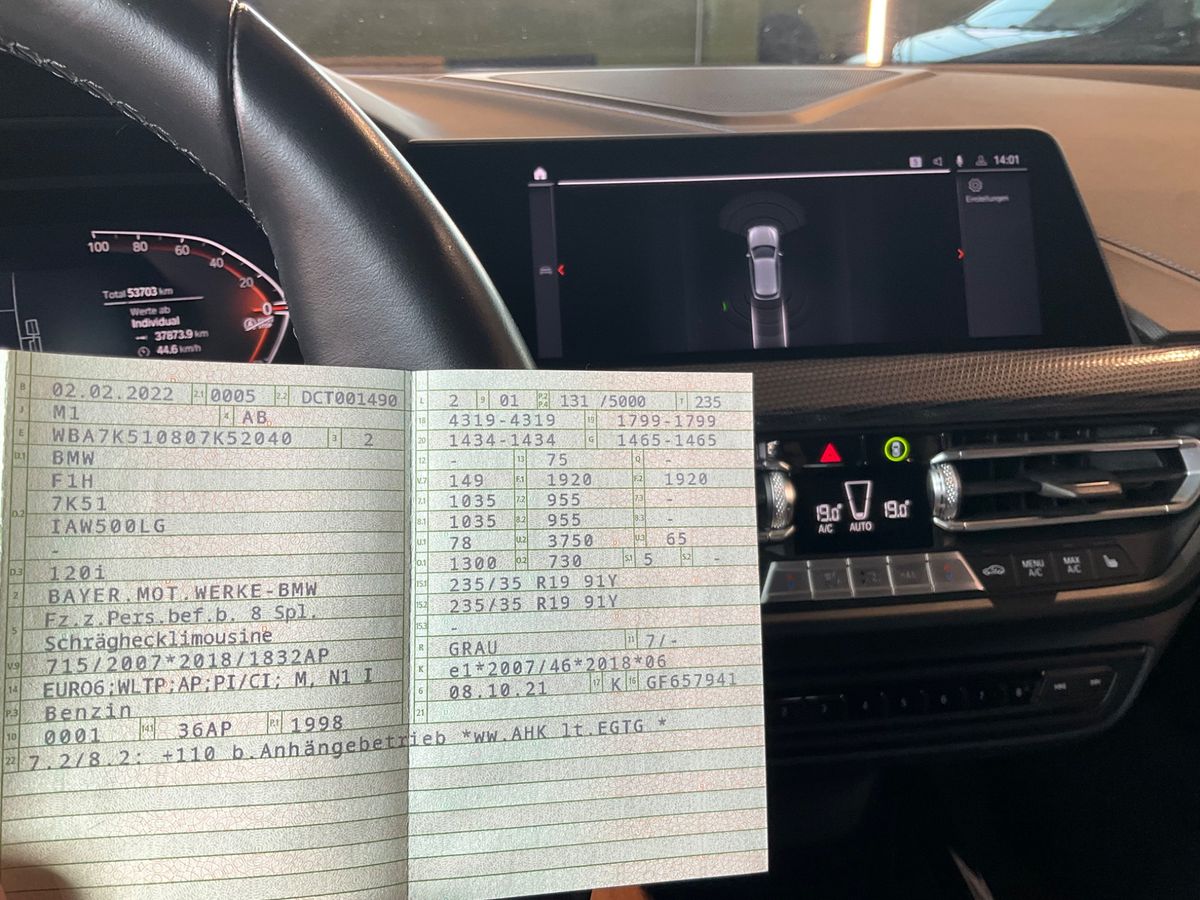 14:01
Einstellungen
100 80 60 40 20 0
Total 53703 km
Werte ab
Individual
37873.9 km
44.6 km/h
19.0° 19.0°
A/C AUTO
MENU A/C MAX A/C
B 02.02.2022 2.1 0005 2.2 DCT001490
J M1 4 AB
E WBA7K510807K52040 3 2
D.1 BMW
F1H
D.2 7K51
IAW500LG
-
D.3 120i
2 BAYER.MOT.WERKE-BMW
5 Fz.z.Pers.bef.b. 8 Spl.
Schräghecklimousine
V.9 715/2007*2018/1832AP
14 EURO6;WLTP;AP;PI/CI; M, N1 I
P.3 Benzin
10 0001 14.1 36AP P.1 1998
22 7.2/8.2: +110 b.Anhängebetrieb *ww.AHK lt.EGTG *
L 2 9 01 P.2 P.4 131 /5000 T 235
18 4319-4319 19 1799-1799
20 1434-1434 G 1465-1465
12 - 13 75 Q -
V.7 149 F.1 1920 F.2 1920
7.1 1035 7.2 955 7.3 -
8.1 1035 8.2 955 8.3 -
U.1 78 U.2 3750 U.3 65
O.1 1300 O.2 730 S.1 5 S.2 -
15.1 235/35 R19 91Y
15.2 235/35 R19 91Y
15.3 -
R GRAU 11 7/-
K e1*2007/46*2018*06
6 08.10.21 17 K 16 GF657941
21